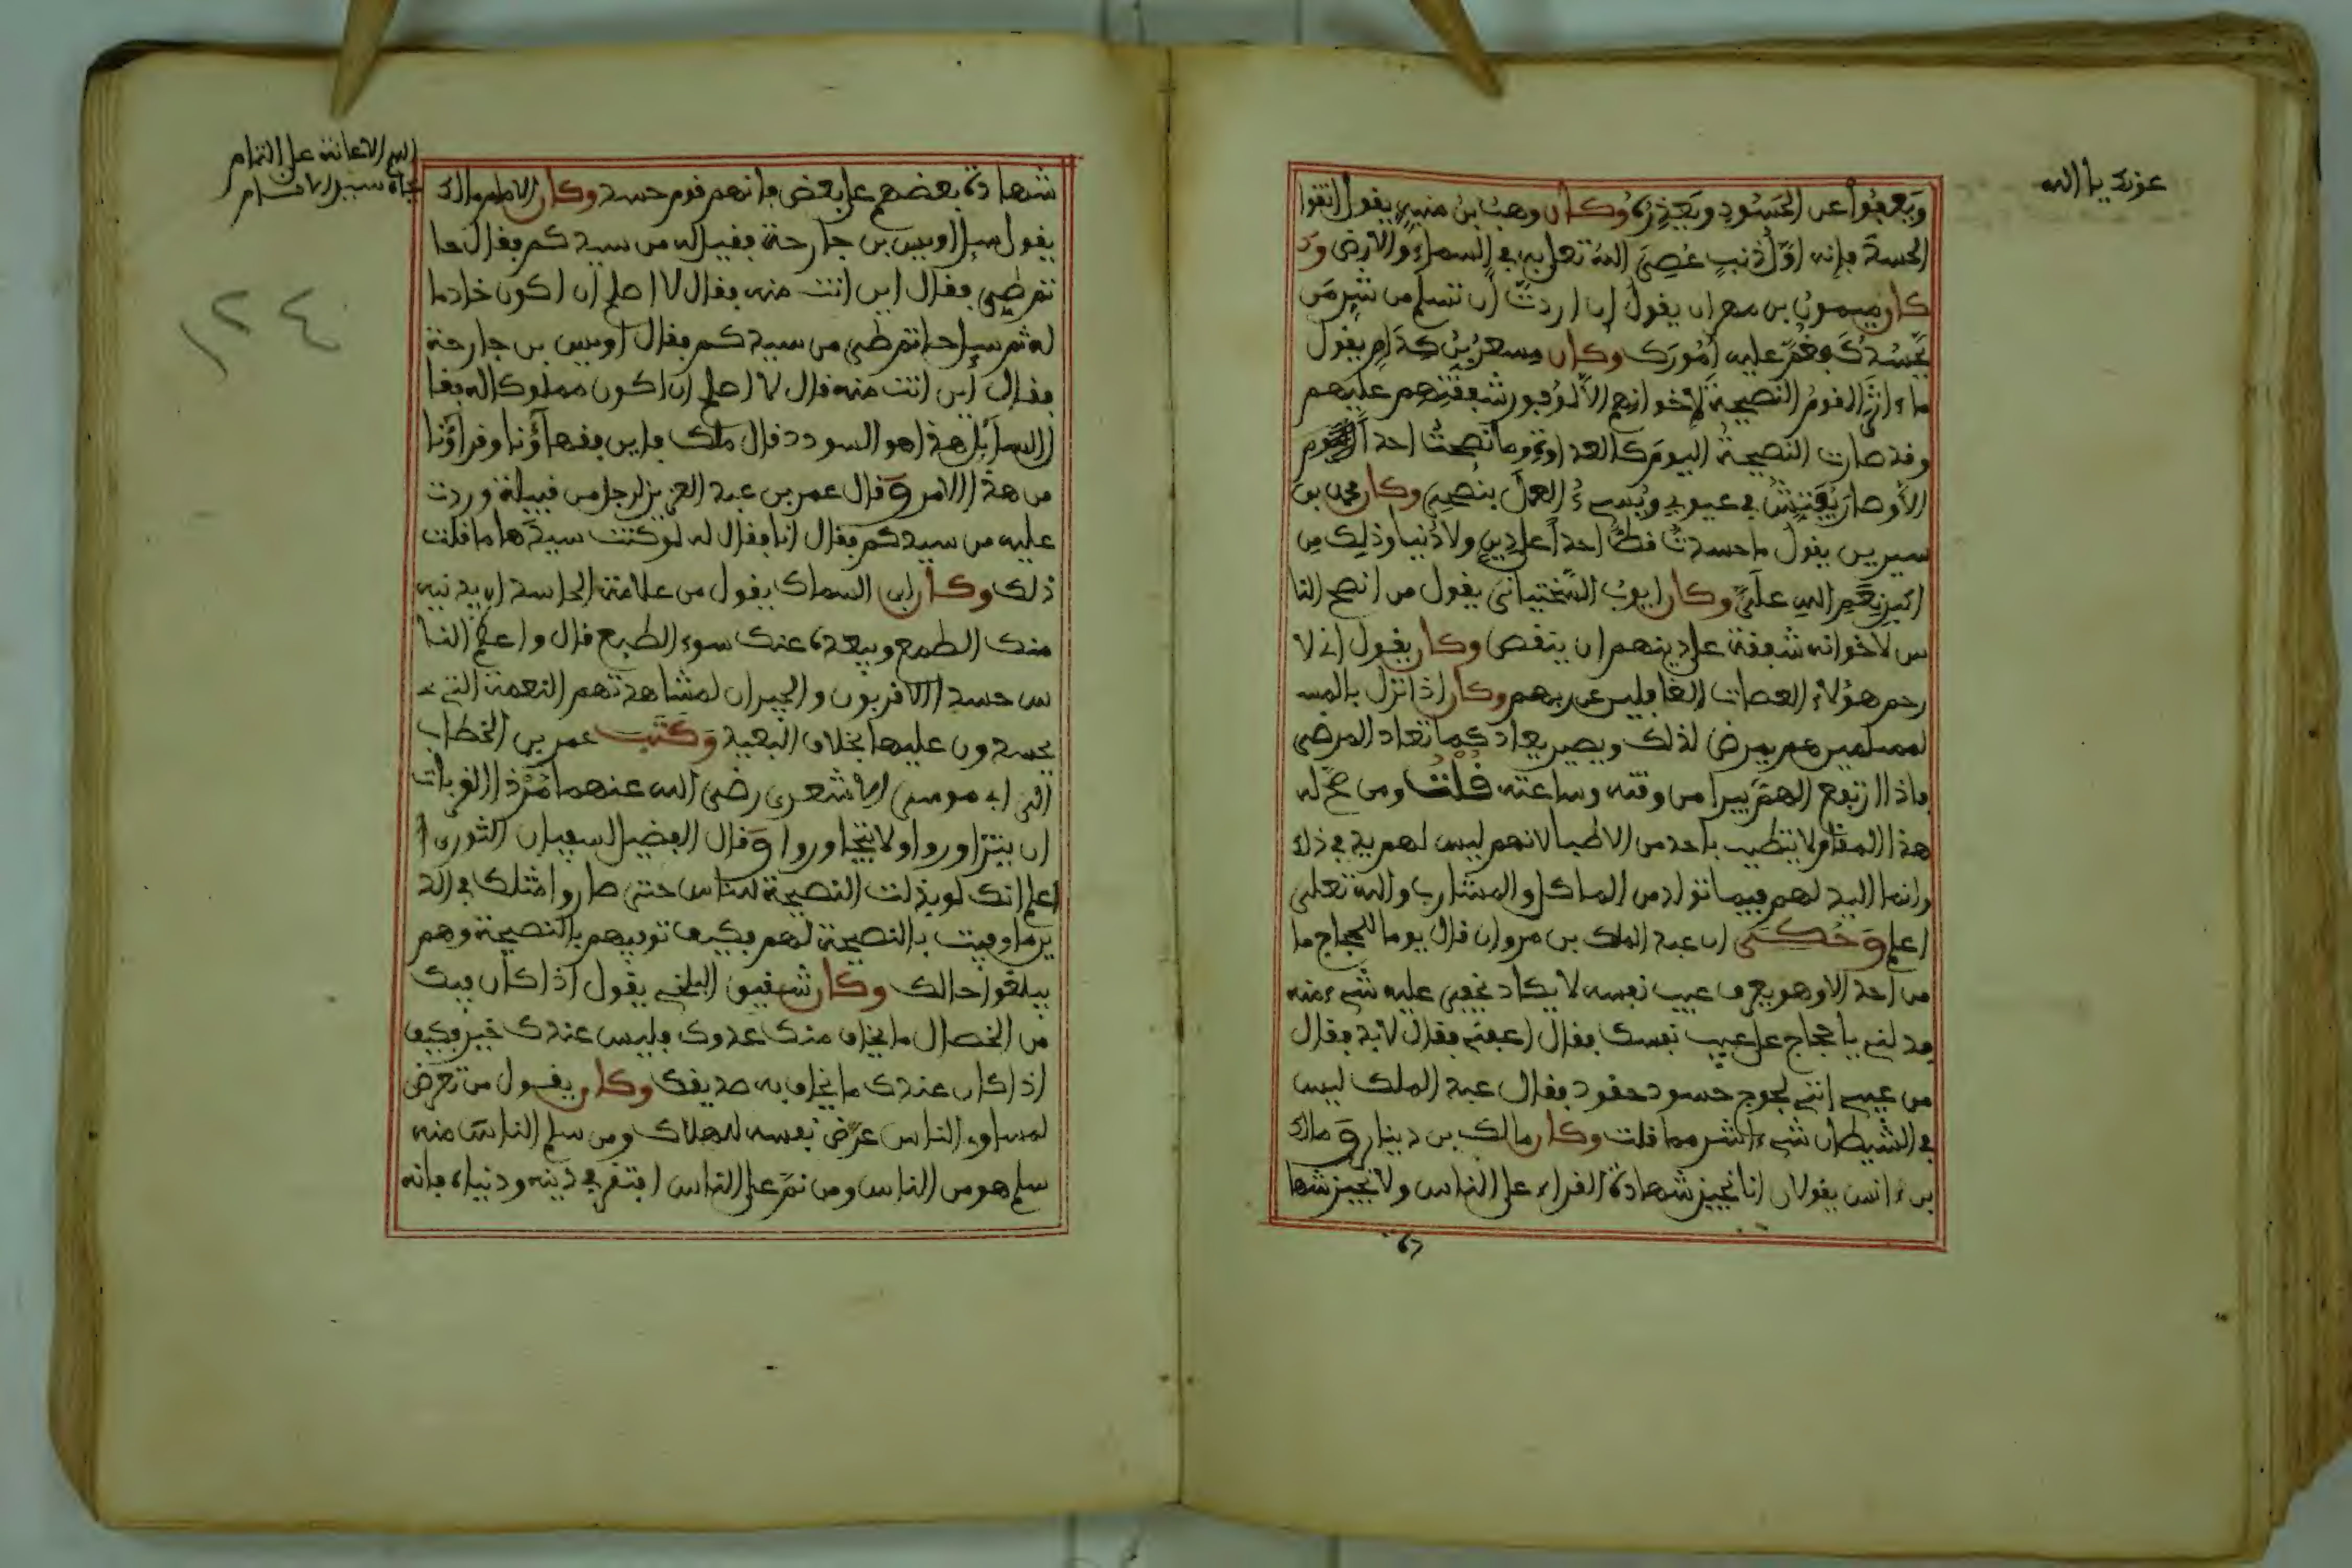 عونك يا الله
ويعفوا عن الحسود ويعذره وكان وهب بن منبه يقول اتقوا
الحسد فإنه أول ذنب عصي الله تعلى به في السماء والارض وكا
كان ميمون بن مهران يقول إن اردت أن تسلم من شر من
يحسدك فغم عليه أمورك وكان مسعر بن كدام يقول
ما اثر القوم النصيحة لإخوانهم الا لوفور شفقتهم عليهم
وقد صارت النصيحة اليوم كالعداوة وما نصحت احدا اليوم
الا وصار يفتش في عيوبي ويسيء العمل بنصحي وكان محمد بن
سيرين يقول ما حسدت قط احدا على دين ولا دنيا وذلك من
اكبر نعم الله علي وكان ايوب السختياني يقول من انصح النا
س لاخوانه شفقة على دينهم ان ينقص وكان يقول اني لا
رحم هؤلاء العصات الغافلين عن ربهم وكان اذا نزل بالمسـ
لمسلمين هم يمرض لذلك ويصير يعاد كما تعاد المرضى
فاذا ارتفع الهم يبرا من وقته وساعته قلت ومن صح له
هذا المقام لا يتطبب باحد من الاطبا لانهم ليس لهم يد في ذلك
وانما اليد لهم فيما تولد من الماكل والمشارب والله تعلى
اعلم وحكى ان عبد الملك بن مروان قال يوما للحجاج ما
من احد الا وهو يعرف عيب نفسه لا يكاد يخفى عليه شيء منه
فدلني يا حجاج على عيب نفسك فقال اعفني فقال لابد فقال
من عيبي إنني لجوج حسود حقود فقال عبد الملك ليس
في الشيطان شيء اشر مما قلت وكان مالك بن دينار ومالك
بن انس يقولان انا نجيز شهادة القراء على الناس ولا نجيز شها
شهادة بعضهم على بعض فانهم قوم حسد وكان الامام مالك
يقول سيل اويس بن جارحة فقيل له من سيدكم فقال حا
تم طي فقال اين انت منه فقال لا اصلح ان اكون خادما
له ثم سيل حاتم طي من سيدكم فقال اويس بن جارحة
فقال أين انت منه قال لا اصلح ان اكون مملوكا له فقا
ل السائل هذا هو السودد قال ملك فاين فقهاؤنا وقراؤنا
من هذا الامر وقال عمر بن عبد العزيز لرجل من قبيلة وردت
عليه من سيدكم فقال انا فقال له لو كنت سيدها ما قلت
ذلك وكان ابن السماك يقول من علامة الحاسد ان يدنيه
منك الطمع ويبعده عنك سوء الطبع قال واعظم النا
س حسدا الاقربون والجيران لمشاهدتهم النعمة التي
يحسدون عليها بخلاف البعيد وكتب عمر بن الخطاب
الى ابي موسى الاشعري رضي الله عنهما مر ذا القربات
ان يتزاوروا ولا يتجاوروا وقال الفضيل لسفيان الثوري ا
اعلم انك لو بذلت النصيحة للناس حتى صاروا مثلك في الد
ين ما وفيت بالنصيحة لهم فكيف توفيهم بالنصيحة وهم
يبلغوا حالك وكان شقيق البلخي يقول اذا كان فيك
من الخصال ما يخاف منك عدوك فليس عندك خير فكيف
اذا كان عندك ما يخاف به صديقك وكان يقول من تعرض
لمساوء الناس عرض نفسه للهلاك ومن سلم الناس منه
سلم هو من الناس ومن نم على الناس افتقر في دينه ودنياه فانه
١٢٤